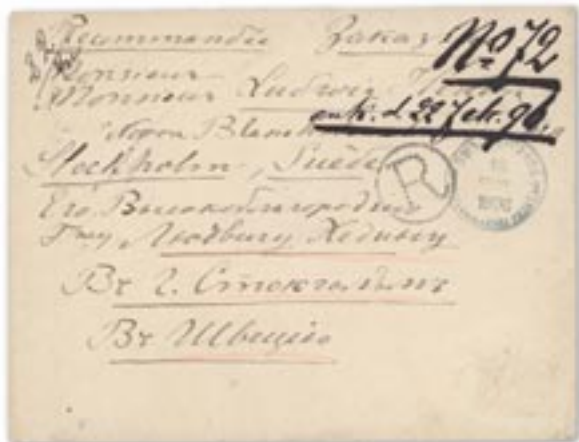 Recommandée Заказ
№ 72
Monsieur
Monsieur Ludwig
ank. d. 22 Febr. 96.
Norra
Stockholm, Suède
R
Его Высокоблагородию
Г-ну Людвигу Хедину
Въ г. Стокгольмъ
Въ Швецію